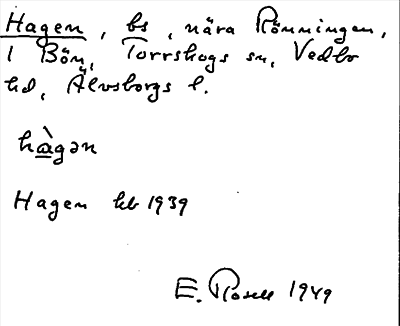 Hagen, bs, nära Rönningen,
1 Bön, Torrskogs sn, Vedbo
hd, Älvsborgs l.
hàgən
Hagen hb 1939
E. Rosell 1949